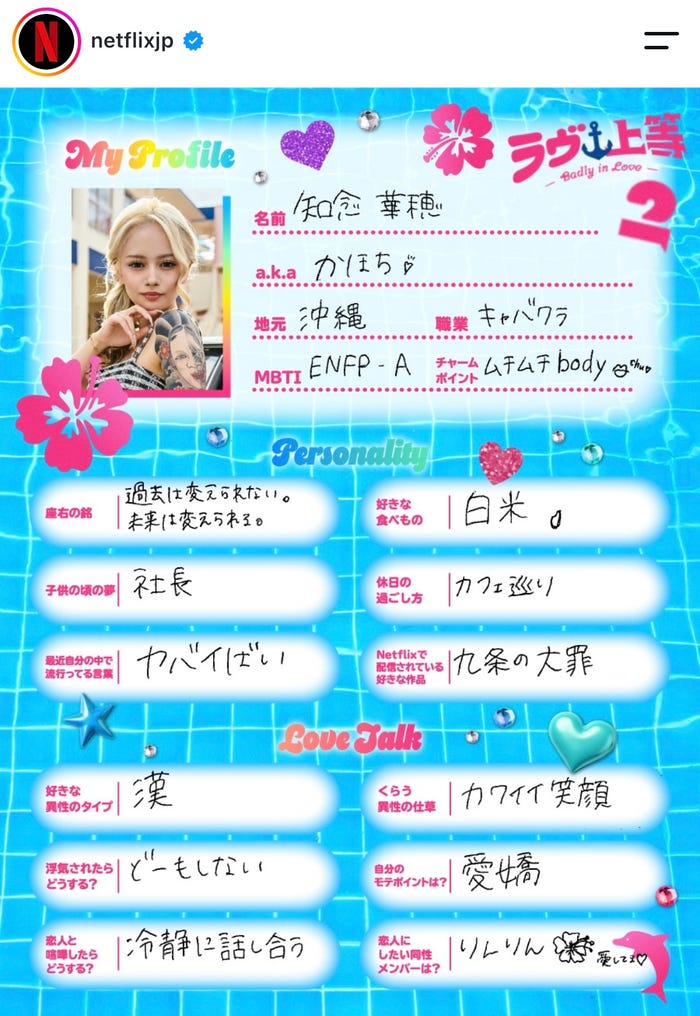 netflixjp
My Profile
ラヴ上等
Badly in Love
2
名前 知念 華穂
a.k.a かほち
地元 沖縄
職業 キャバクラ
MBTI ENFP-A
チャーム
ポイント ムチムチbody chu
Personality
座右の銘
過去は変えられない。
未来は変えられる。
好きな
食べもの
白米
子供の頃の夢 社長
休日の
過ごし方
カフェ巡り
最近自分の中で
流行ってる言葉
ヤバイばい
Netflixで
配信されている
好きな作品
九条の大罪
Love Talk
好きな
異性のタイプ
漢
くらう
異性の仕草
カワイイ笑顔
浮気されたら
どうする?
どーもしない
自分の
モテポイントは?
愛嬌
恋人と
喧嘩したら
どうする?
冷静に話し合う
恋人に
したい同性
メンバーは?
りんりん
愛してる